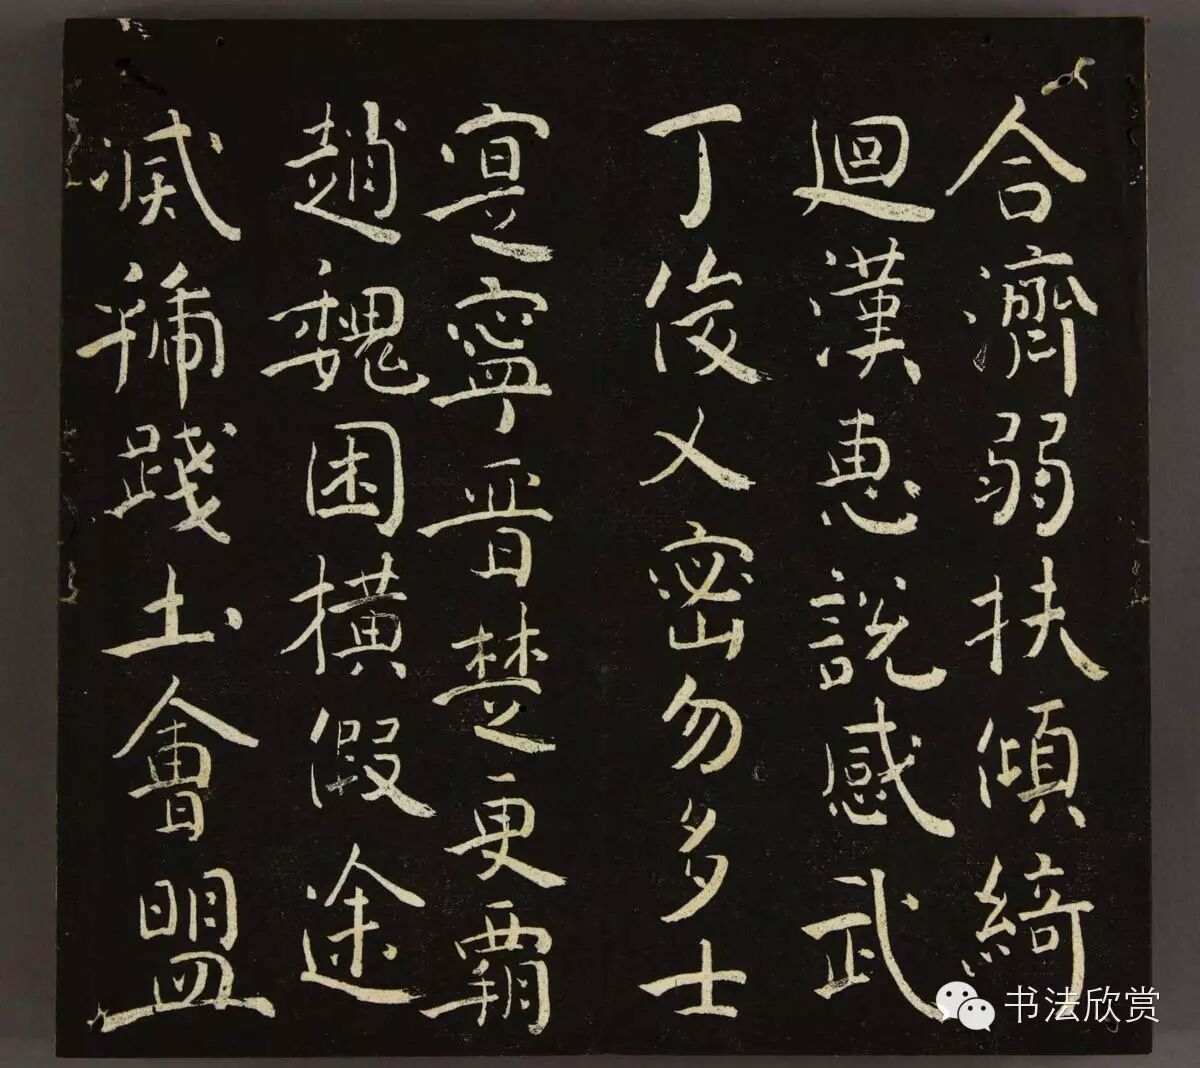 合濟弱扶傾綺
迴漢惠說感武
丁俊乂密勿多士
寔寧晋楚更霸
趙魏困橫假途
滅虢踐土會盟
书法欣赏